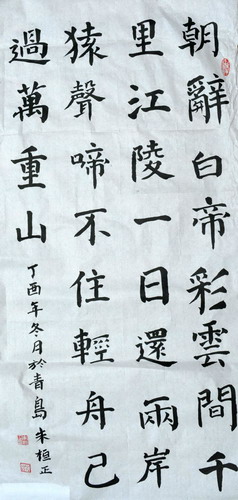 朝辭白帝彩雲間千
里江陵一日還兩岸
猿聲啼不住輕舟已
過萬重山
丁酉年冬月於青島朱恒正